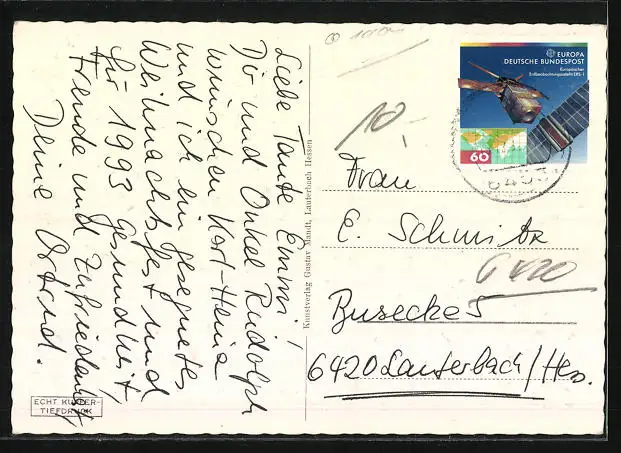 Liebe Tante Emmi!
Dir und Onkel Rudolph
wünschen Karl-Heinz
und ich ein gesegnetes
Weihnachtsfest und
für 1993 Gesundheit,
Freude und Zufriedenheit,
Deine Ortrud.
ECHT KUPFER-
TIEFDRUCK
Kunstverlag Gustav Mandt, Lauterbach Hessen
10,-
EUROPA
DEUTSCHE BUNDESPOST
Europäischer
Erdbeobachtungssatellit ERS-1
60
Frau
E. Schmitz
6420
Busecker 5
6420 Lauterbach/Hes.